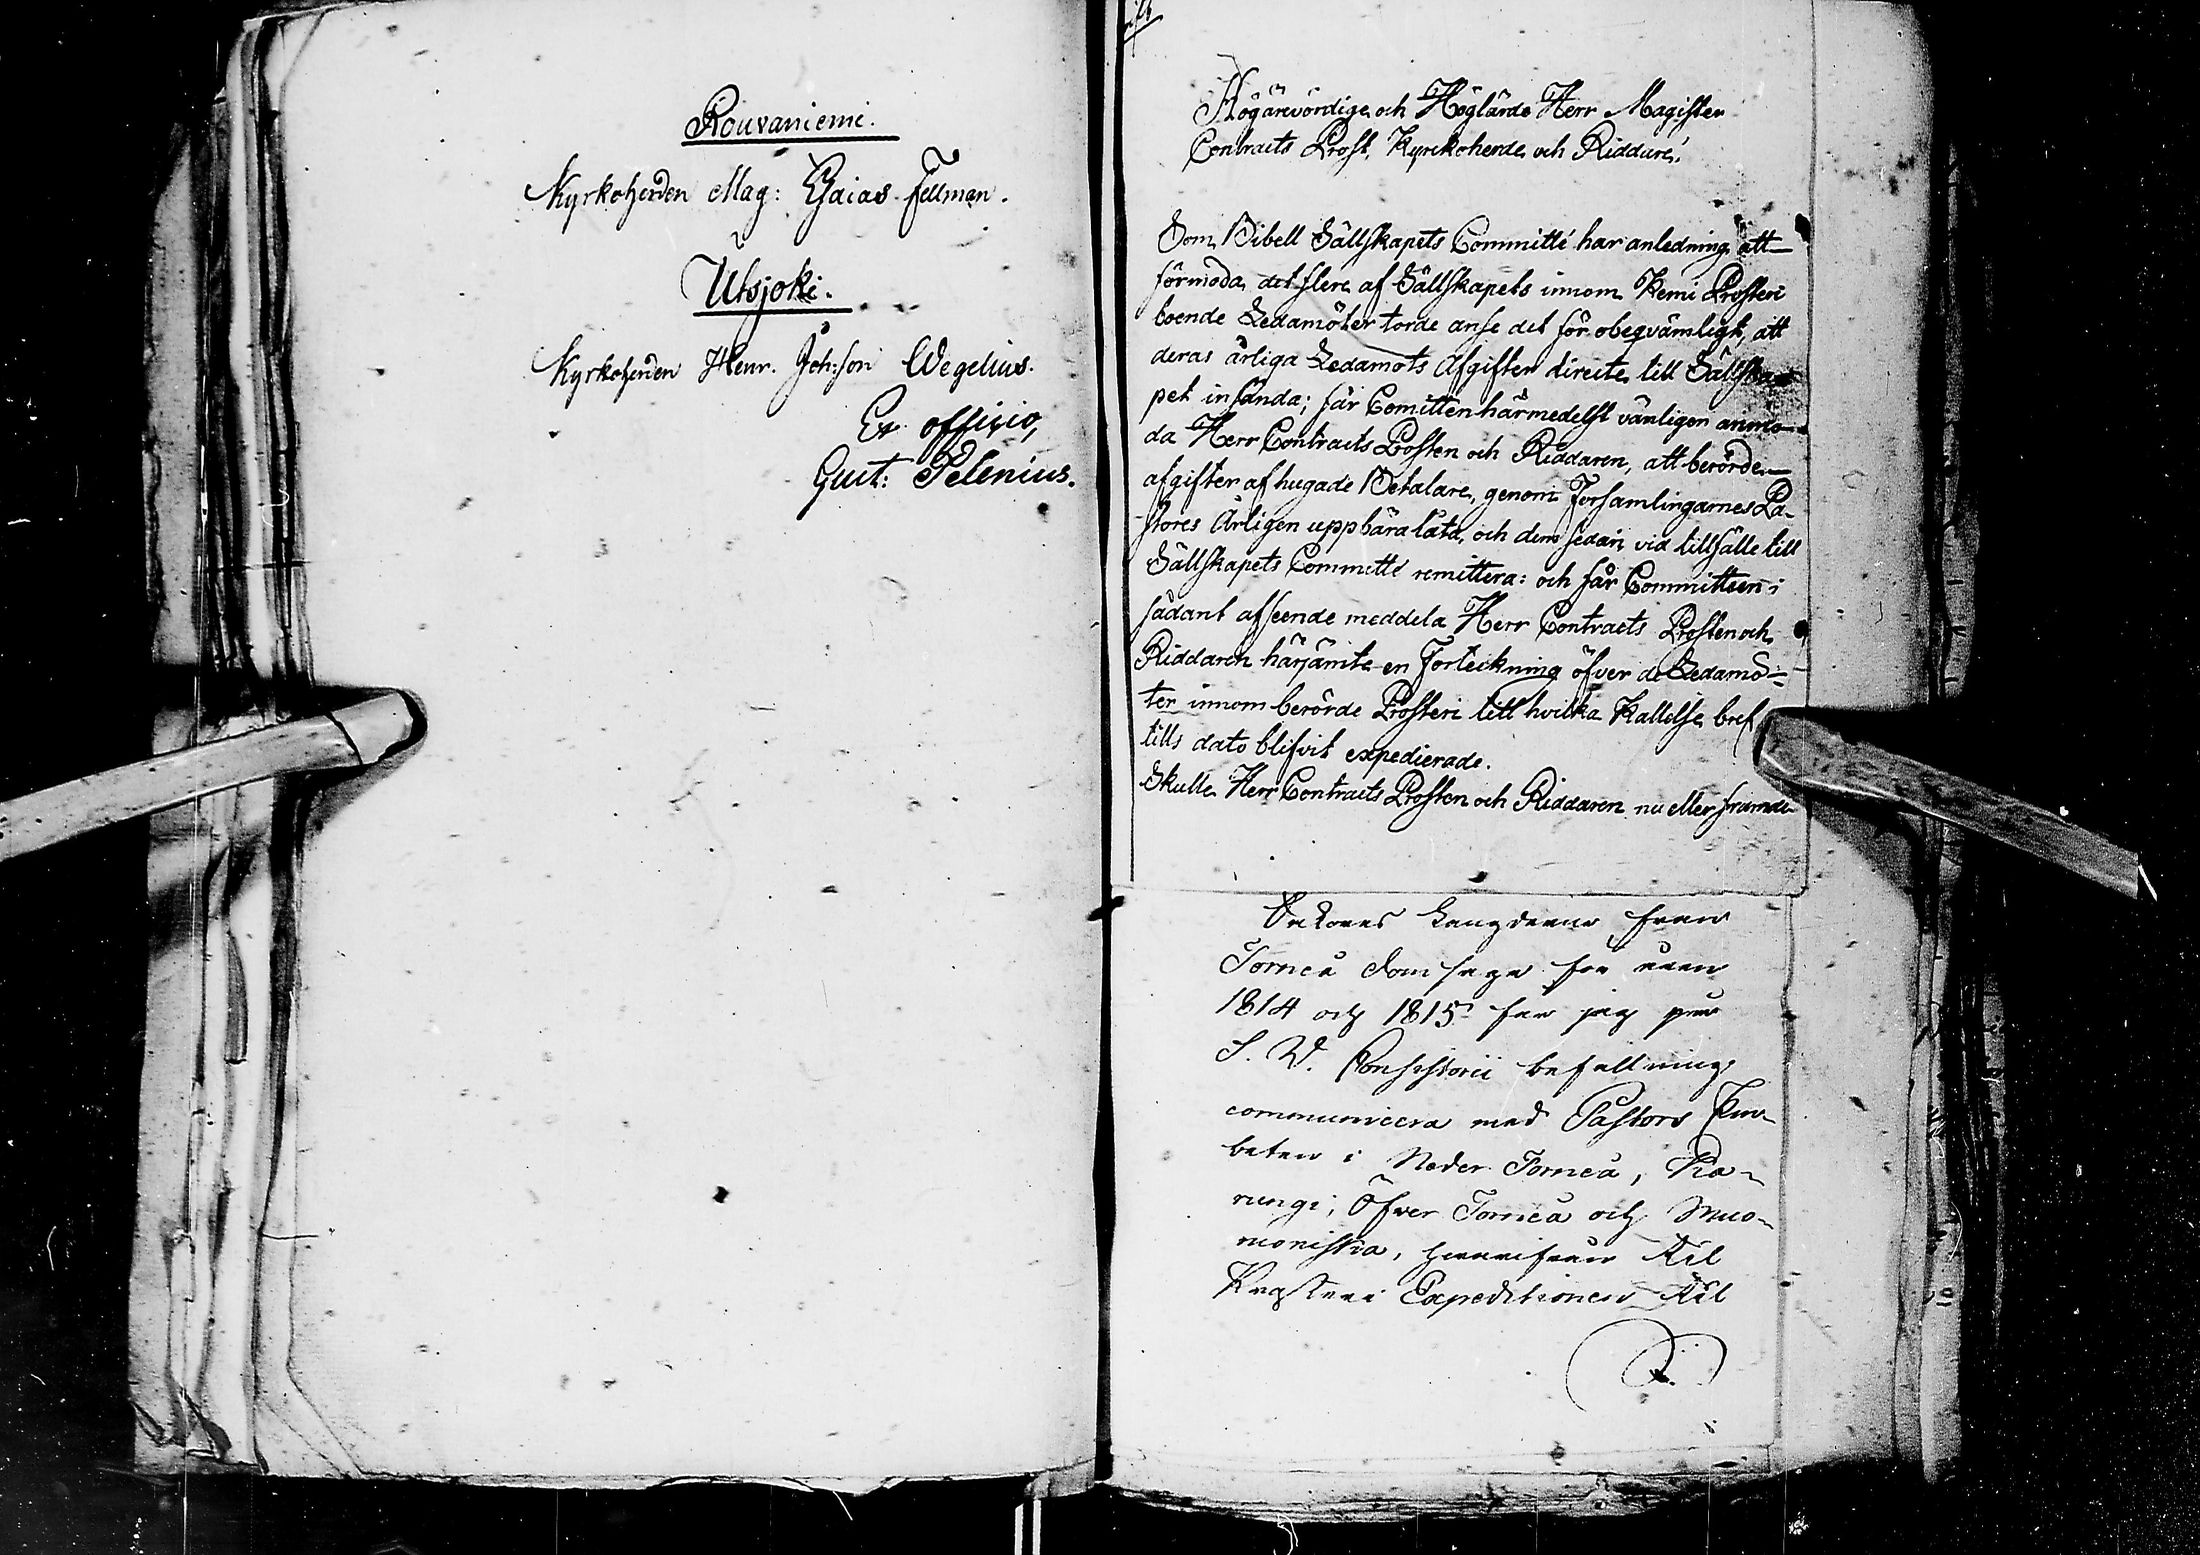 Rouvaniemi.
Kyrkoherden Mag: Esaias Fellman.
Utsjoki.
Kyrkoherden Henr. Joh:son Wegelius.
Ex officio,
Gust: Pelenius.
Högärevördige och Höglärde Herr Magister
Contracts Prost, Kyrckoherde och Riddare!
Som Bibell Sällskapets Committé har anledning att
förmoda, det flere af Sällskapets innom Kemi Prosteri
boende Ledamöter torde anse det för obeqvämligt, att
deras årliga Ledamots Afgifter directe till Sällska-
pet insända; får Comitten härmedelst vänligen anmo-
da Herr Contracts Prosten och Riddaren, att berörde
afgifter af hugade Betalare, genom Forsamlingarnes Pa-
stores Årligen uppbära låta, och dem sedan vid tillfälle till
Sällskapets Committé remittera: och får Committeen i
sådant afseende meddela Herr Contracts Prosten och
Riddaren härjämte en Forteckning öfver de Ledamö-
ter innom berörde Prosteri till hvilka Kallelse bref
tills dato blifvit expedierade.
Skulle Herr Contracts Prosten och Riddaren nu eller framde-
Längderne från
Torneå Domsaga för åren
1814 och 1815 får jag på
S. W. Consistorii befallning
communicera med Pastors Em-
beten i Neder Torneå, Ka-
rungi, Öfver Torneå och Muo-
nioniska, hvarifrån till
Prosteri Expeditionen till